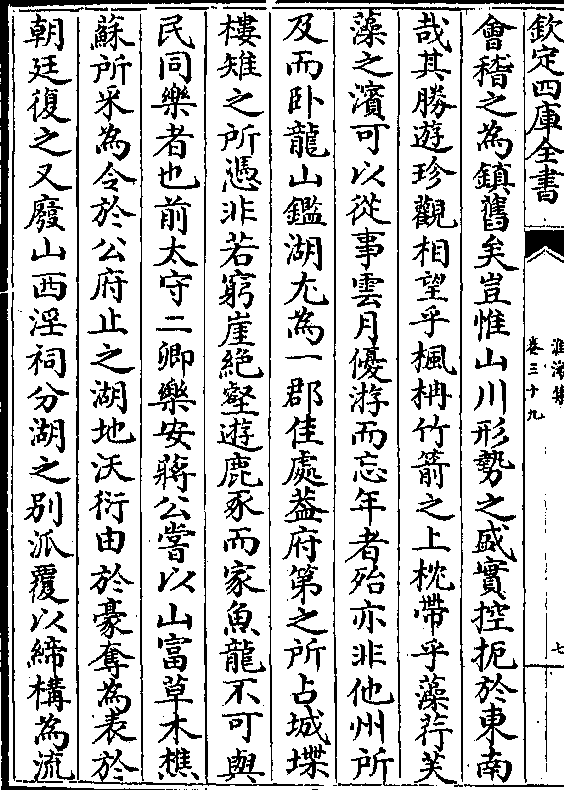 欽定四庫全書
淮海集
卷三十九
七
會稽之為鎮舊矣豈惟山川形勢之盛實控扼於東南
哉其勝遊珍觀相望乎楓柟竹箭之上枕帶乎藻荇芙
蕖之濱可以從事雲月優游而忘年者殆亦非他州所
及而卧龍山鑑湖尤為一郡佳處葢府第之所占城堞
樓雉之所憑非若窮崖絶壑遊鹿豕而家魚龍不可與
民同樂者也前太守二卿樂安蔣公嘗以山富草木樵
蘇所采為令於公府止之湖地沃衍由於豪奪為表於
朝廷復之又廢山西淫祠分湖之别派覆以締構為流